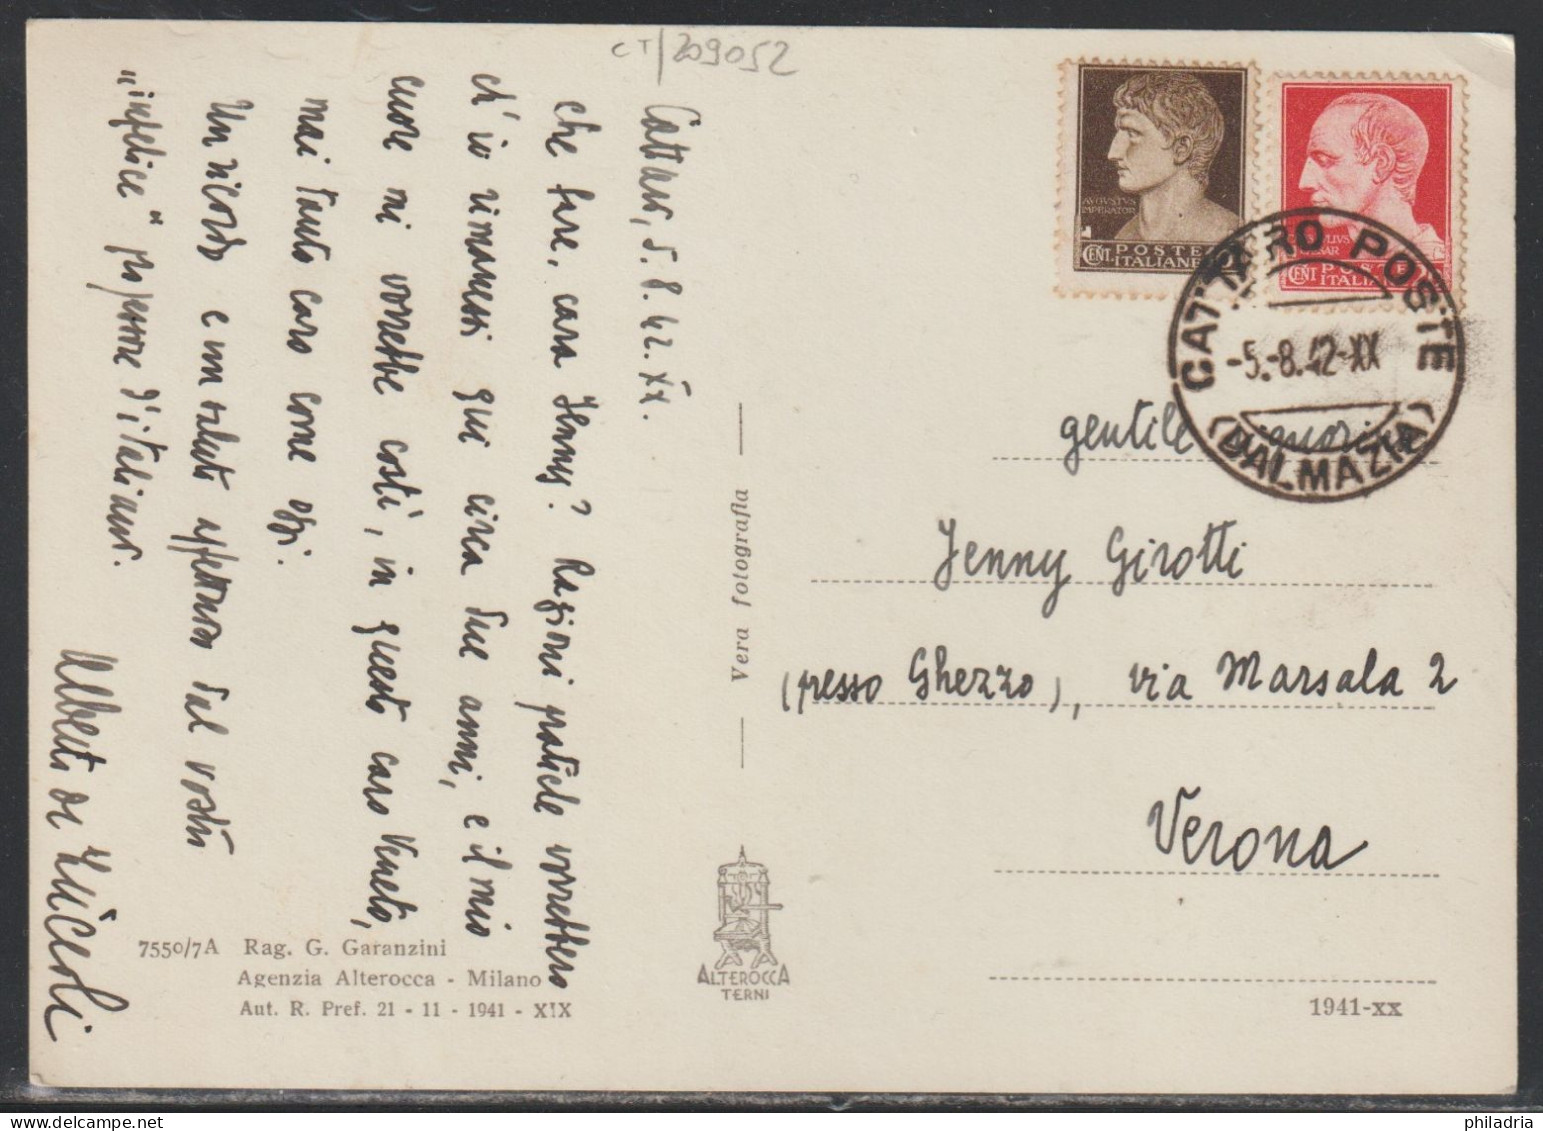 CT/209052
Cattaro, 5.8.42.XX.
che fare, cara Jenny? Ragioni pratiche vorrebbero
ch'io rimanessi qui circa due anni, e il mio
cuore mi vorrebbe costì, in questo caro Veneto,
mai tanto caro come oggi.
Un ricordo e un saluto affettuoso dal vostro
"infelice" professore d'italiano.
Alberto
7550/7A Rag. G. Garanzini
Agenzia Alterocca - Milano
Aut. R. Pref. 21 - 11 - 1941 - XIX
Vera fotografia
ALTEROCCA
TERNI
AVGVSTVS
IMPERATOR
CENT. POSTE
ITALIANE
CENT
CATTARO POSTE
-5.-8.42-XX
(DALMAZIA)
gentile
Jenny Girotti
(presso Ghezzo), via Marsala 2
Verona
1941-XX
philadria